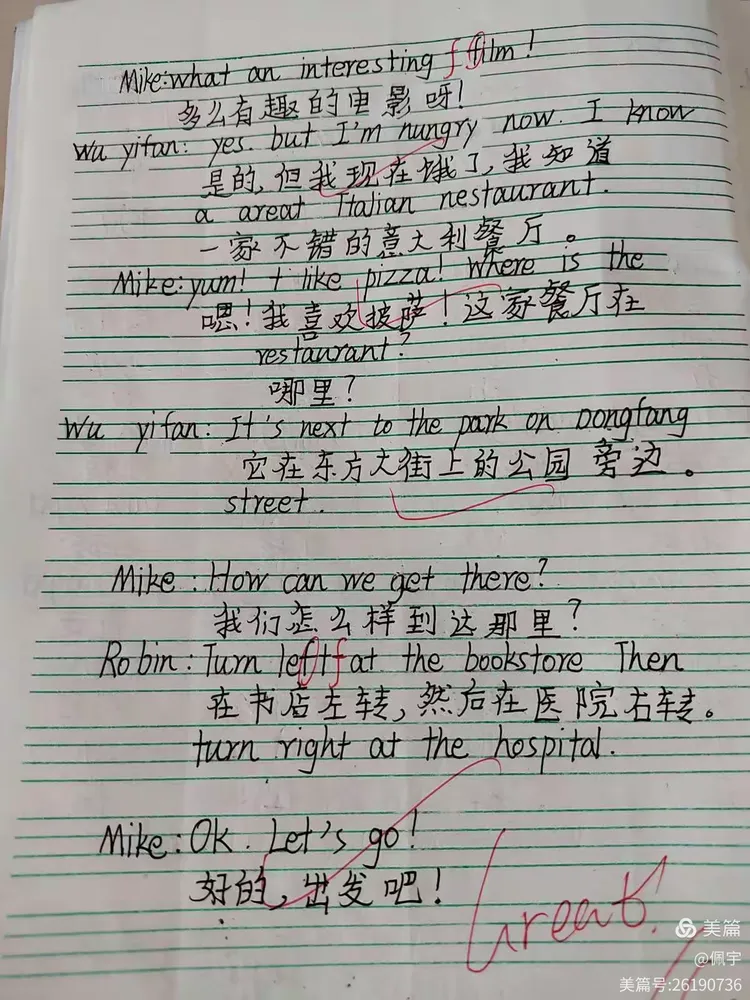 Mike: what an interesting f film!
多么有趣的电影呀!
Wu yifan: yes. but I'm nungry now. I know
是的,但我现在饿了,我知道
a areat Italian nestaurant.
一家不错的意大利餐厅。
Mike: yum! t like pizza! Where is the
嗯!我喜欢披萨!这家餐厅在
restaurant?
哪里?
Wu yifan: It's next to the park on Dongfang
它在东方大街上的公园旁边。
street.
Mike: How can we get there?
我们怎么样到达那里?
Robin: Turn left f at the bookstore Then
在书店左转,然后在医院右转。
turn right at the hospital.
Mike: Ok. Let's go!
好的,出发吧!
Great!
美篇
@佩宇
美篇号:26190736